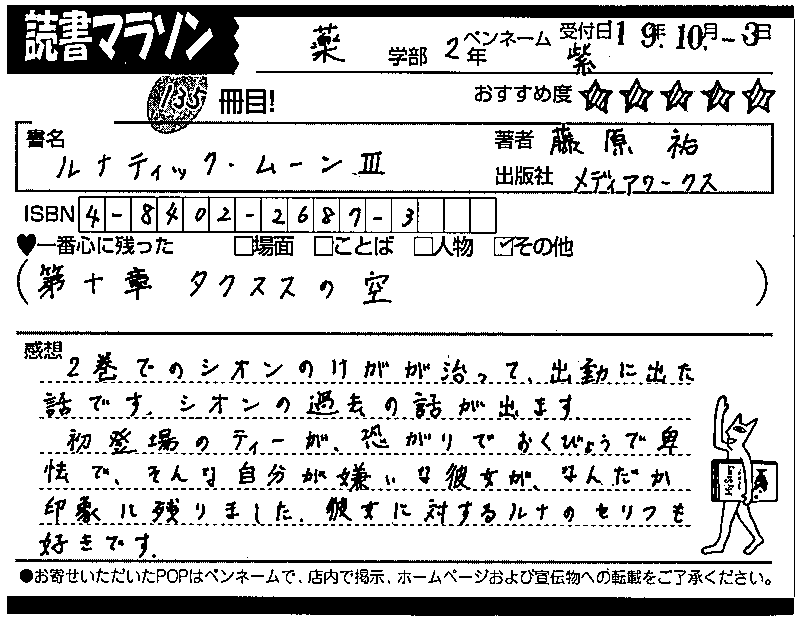 読書マラソン
薬 学部 2年 ペンネーム 紫 受付日 19年10月-3日
135 冊目! おすすめ度 ☆☆☆☆☆
書名 ルナティック・ムーン III
著者 藤原 祐
出版社 メディアワークス
ISBN 4-8402-2687-3
♥一番心に残った □場面 □ことば □人物 ☑その他
(第十章 タクススの空)
感想
2巻でのシオンのけがが治って、出動に出た
話です。シオンの過去の話が出ます
初登場のティーが、恐がりでおくびょうで卑
怯で、そんな自分が嫌いな彼女が、なんだか
印象に残りました。彼女に対するルナのセリフも
好きです。
●お寄せいただいたPOPはペンネームで、店内で掲示、ホームページおよび宣伝物への転載をご了承ください。